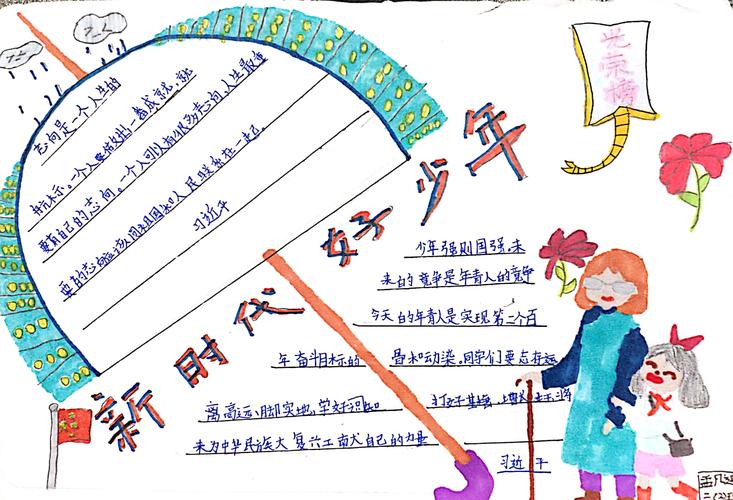 光荣榜
志向是一个人人生的
航标。一个人要做出一番成就,就
要有自己的志向。一个人可以有很多志向,人生最重
要的志向应该同祖国和人民联系在一起
习近平
新时代好少年
少年强则国强,未
来的竞争是年青人的竞争
今天的年青人是实现第二个百
年奋斗目标的 同学们要志存
高远,脚 实地,学好
打好基础,
来为中华民族大复兴 自己的力量
习近平